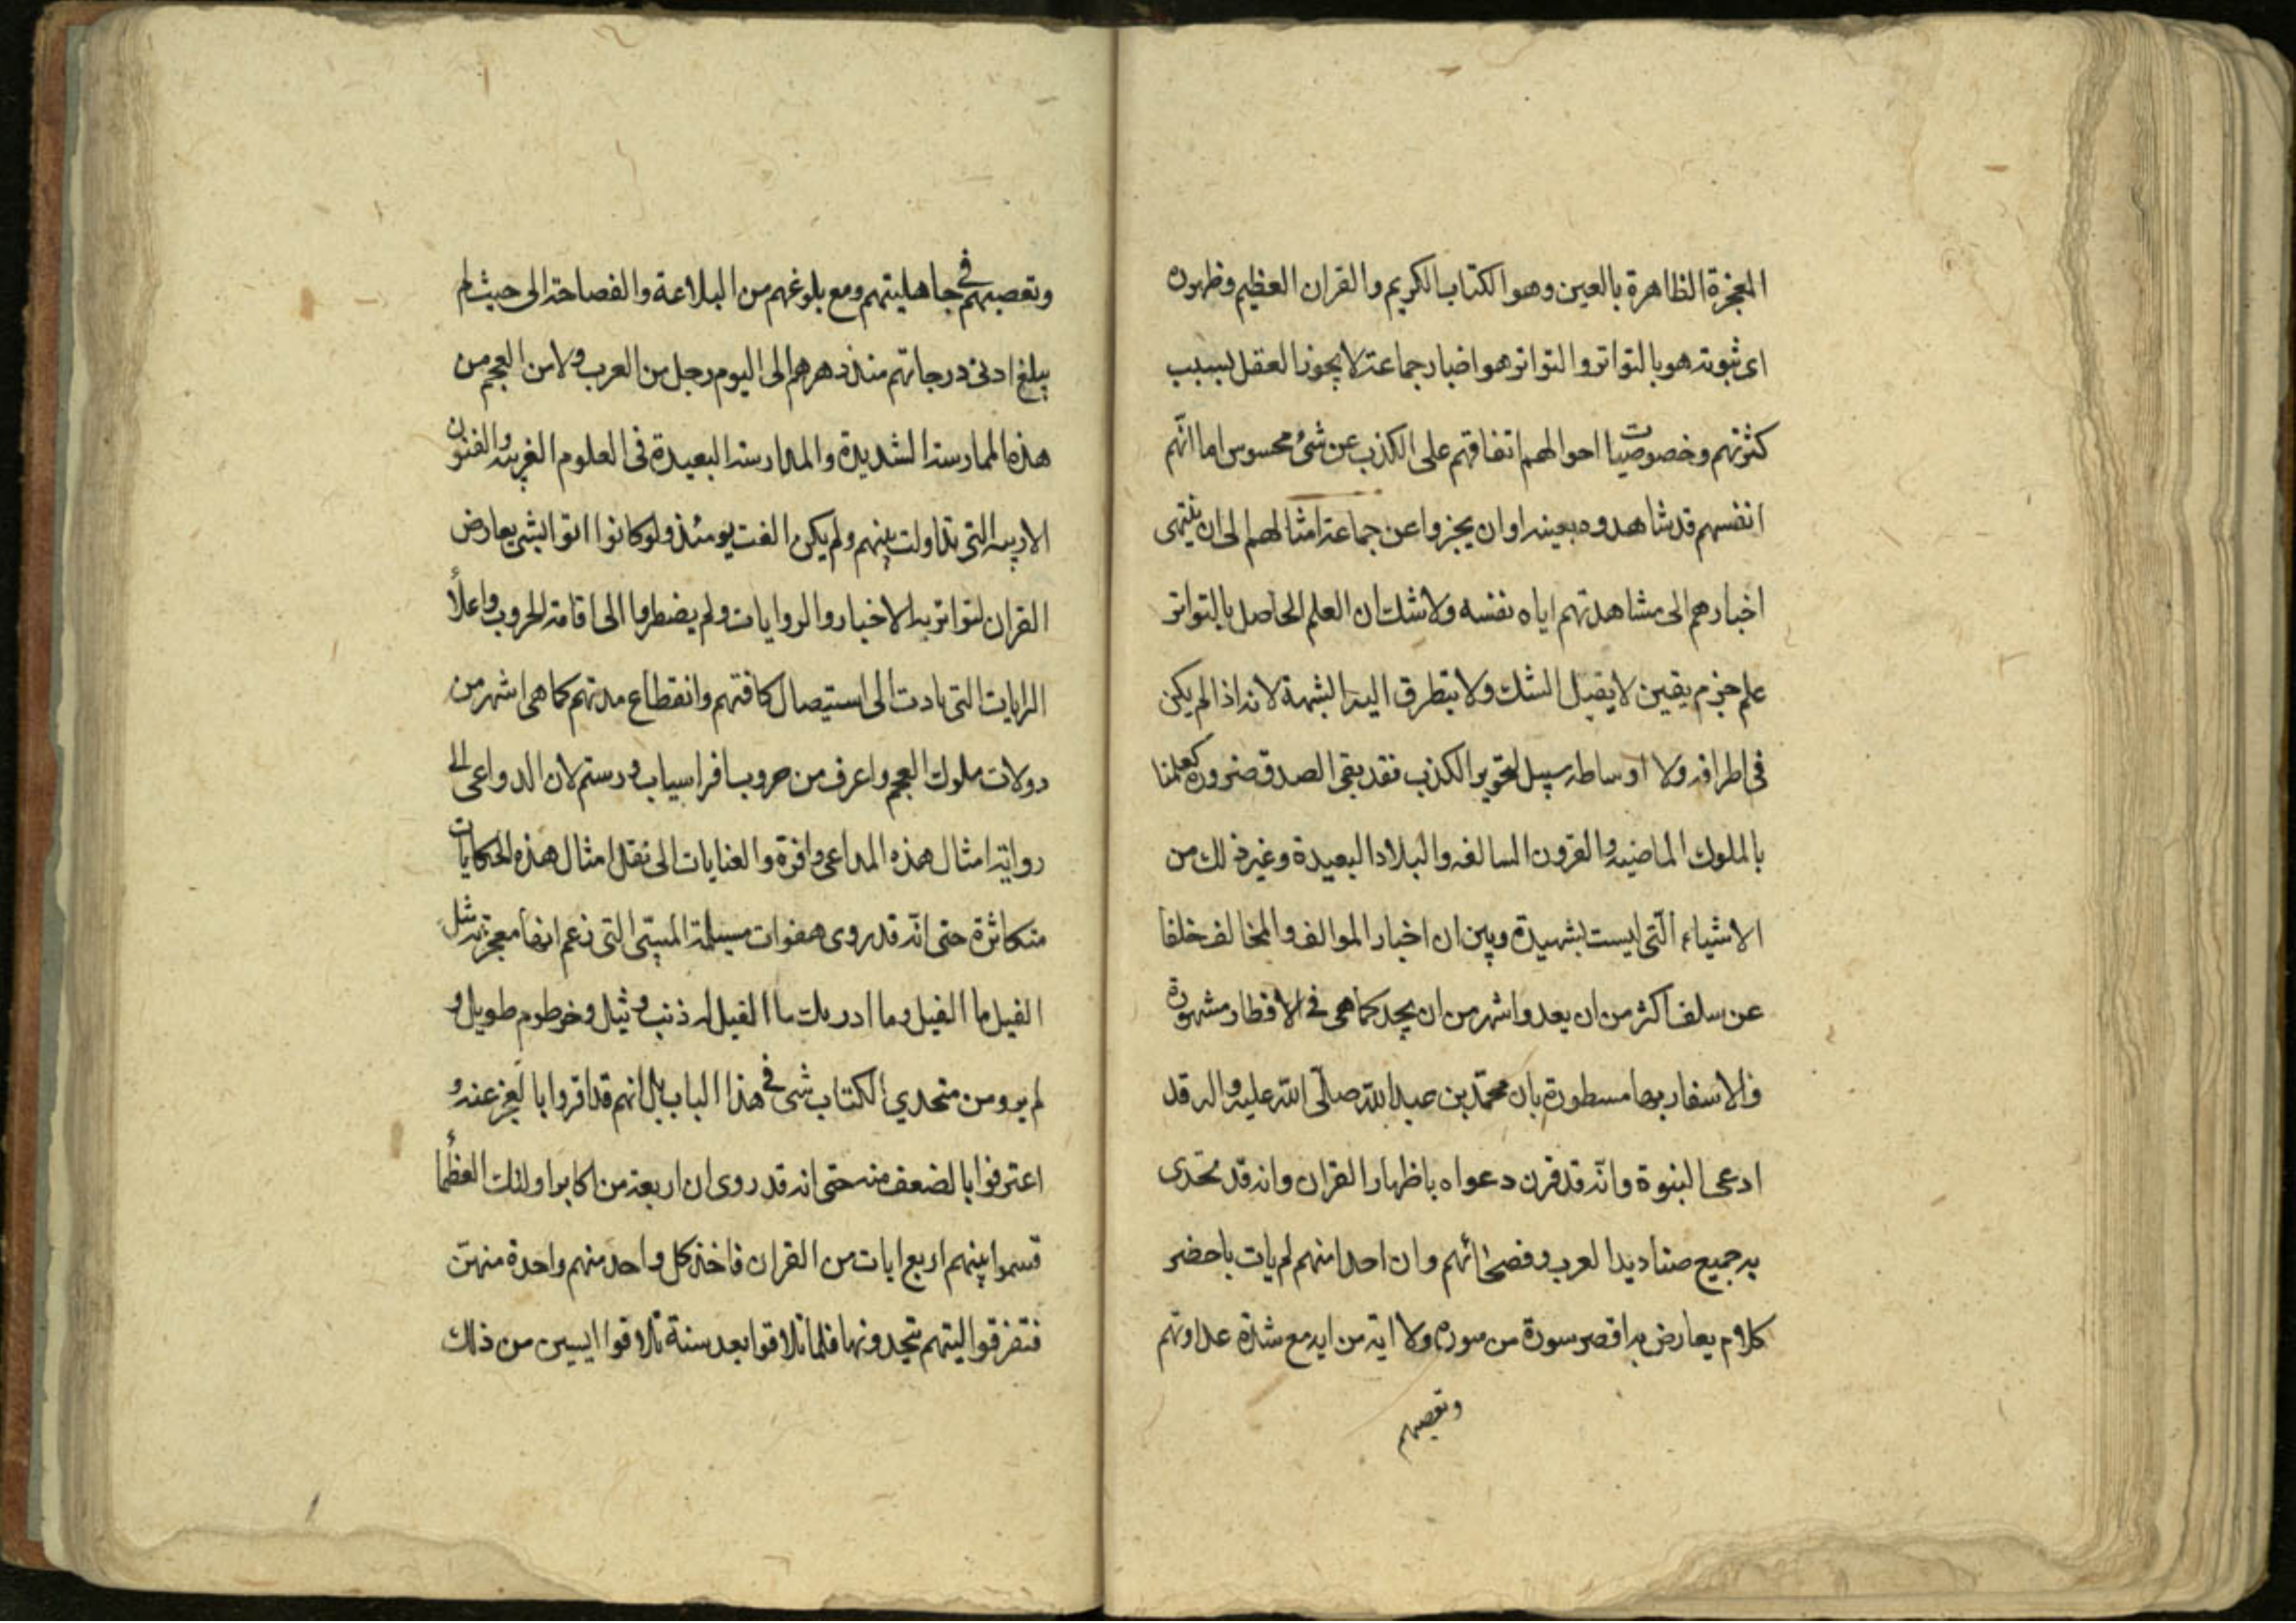 المعجزة الظاهرة بالعين وهو الكتاب الكريم والقران العظيم وظهوره
اى ثبوته هو بالتواتر والتواتر هو اخبار جماعة لا يجوز العقل بسبب
كثرتهم وخصوصيات احوالهم اتفاقهم على الكذب عن شئ محسوس اما انّهم
انفسهم قد شاهدوه بعينه او ان يخبروا عن جماعة امثالهم الى ان ينتهى
اخبارهم الى مشاهدتهم اياه نفسه ولا شك ان العلم الحاصل بالتواتر
علم جزم يقين لا يقبل الشك ولا يتطرق اليه الشبهة لانه اذا لم يكن
فى اطرافه ولا اوساطه سبيل لتجويز الكذب فقد بقى الصدق ضرورة كعلمنا
بالملوك الماضيه والقرون السالفه والبلاد البعيدة وغير ذلك من
الاشياء الّتى ليست بشهيدة وبين ان اخبار الموالف والمخالف خلفا
عن سلف اكثر من ان يعد واشهر من ان يجحد كما هى فى الاقطار مشهورة
والاسفار بها مسطورة بان محمّد بن عبد الله صلّى الله عليه واله قد
ادعى النبوة وانّه قد قرن دعواه باظهار القران وانه قد تحدى
به جميع صناديد العرب وفصحائهم وان احدا منهم لم يات باحضر
كلام يعارض به اقصر سورة من سوره ولا اية من ايه مع شدّة عداوتهم
وتعصبهم
وتعصبهم فى جاهليتهم ومع بلوغهم من البلاغة والفصاحة الى حيث لم
يبلغ ادنى درجاتهم منذ دهرهم الى اليوم رجل من العرب ولا من العجم من
هذه الممارسة الشديدة والمدارسة البعيدة فى العلوم الغريبه والفنون
الادبيه التى تداولت بينهم ولم يكن الفت يومئذ ولو كانوا اتوا بشئ يعارض
القران لتواتر به الاخبار والروايات ولم يضطروا الى اقامة الحروب واعلاء
الرايات التى تادت الى استيصال كافتهم وانقطاع مدتهم كما هى اشهر من
دولات ملوك العجم واعرف من حروب افراسياب ورستم لان الدواعى الى
رواية امثال هذه المداعى وافرة والعنايات الى نقل امثال هذه الحكايات
متكاثرة حتى انّه قد روى هفوات مسيلمة التى زعم انها معجزته مثل
الفيل ما الفيل وما ادريك ما الفيل له ذنب وثيل وخرطوم طويل و
لم يرو من متحدي الكتاب شى فى هذا الباب بل انهم قد اقروا بالعجز عنه و
اعترفوا بالضعف منه حتى انه قد روى ان اربعة من اكابر اولئك العظماء
قسموا بينهم اربع ايات من القران فاخذ كل واحد منهم واحدة منهنّ
فتفرقوا ليتهم يتحدونها فلما تلاقوا بعد سنة تلاقوا ايسين من ذلك